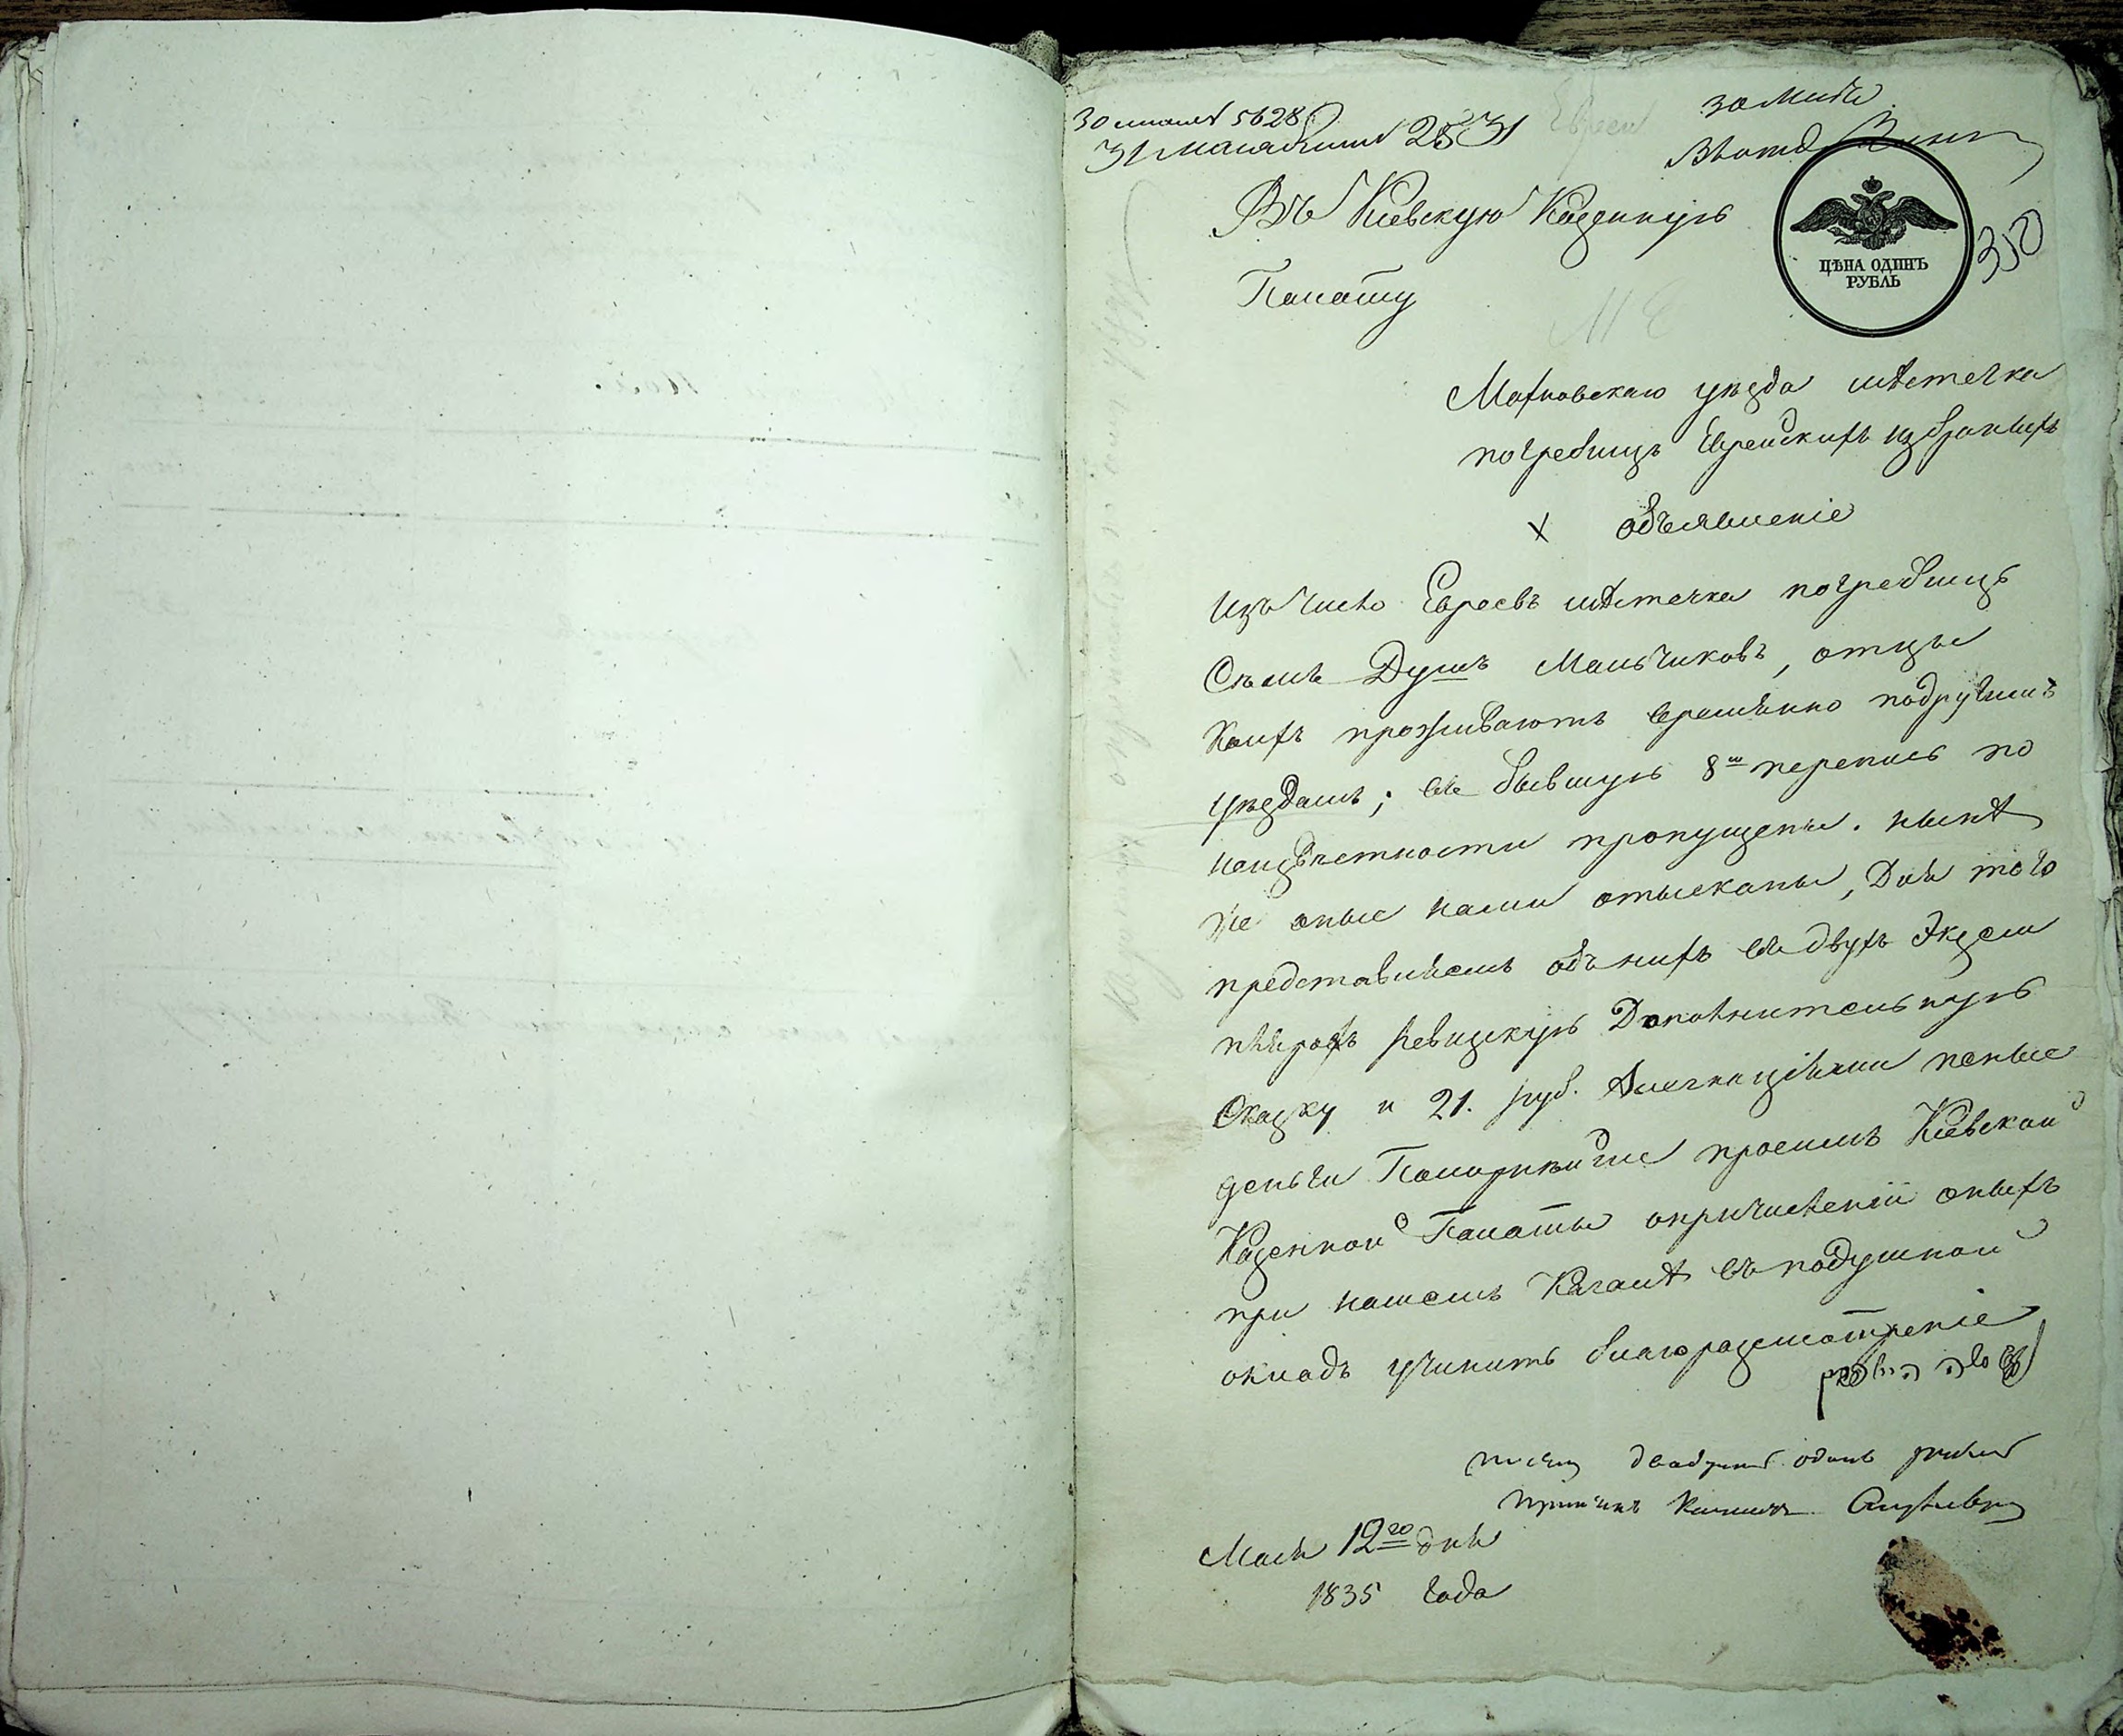 5628
2831
30 Мая
Въ Кіевскую Казенную
ЦѢНА ОДИНЪ
РУБЛЬ
350
Палату
Махновскаго уѣзда мѣстечка
погребищъ Еврейскихъ избраныхъ
объявленіе
Изъ числа Евреевъ мѣстечка погребищъ
Сѣмь Душъ Мальчиковъ, отцы
коихъ проживаютъ времянно подругимъ
уѣздамъ, въ бывшую 8ю перепись по
неизвѣстности пропущены. нынѣ
же оные нами отысканы, Для того
представляемъ объ нихъ въ двухъ Экзем
плярахъ ревизкую Дополнительную
Сказку и 21. руб. Ассигнаціями пеные
деньги Покорнѣйше просимъ Кіевской
Казенной Палаты опричисленіи оныхъ
при нашемъ Кагалѣ въ подушной
окладъ учинить благоразсмотреніе
двадцать одинъ рубль
принялъ
Мая 12го дня
1835 года